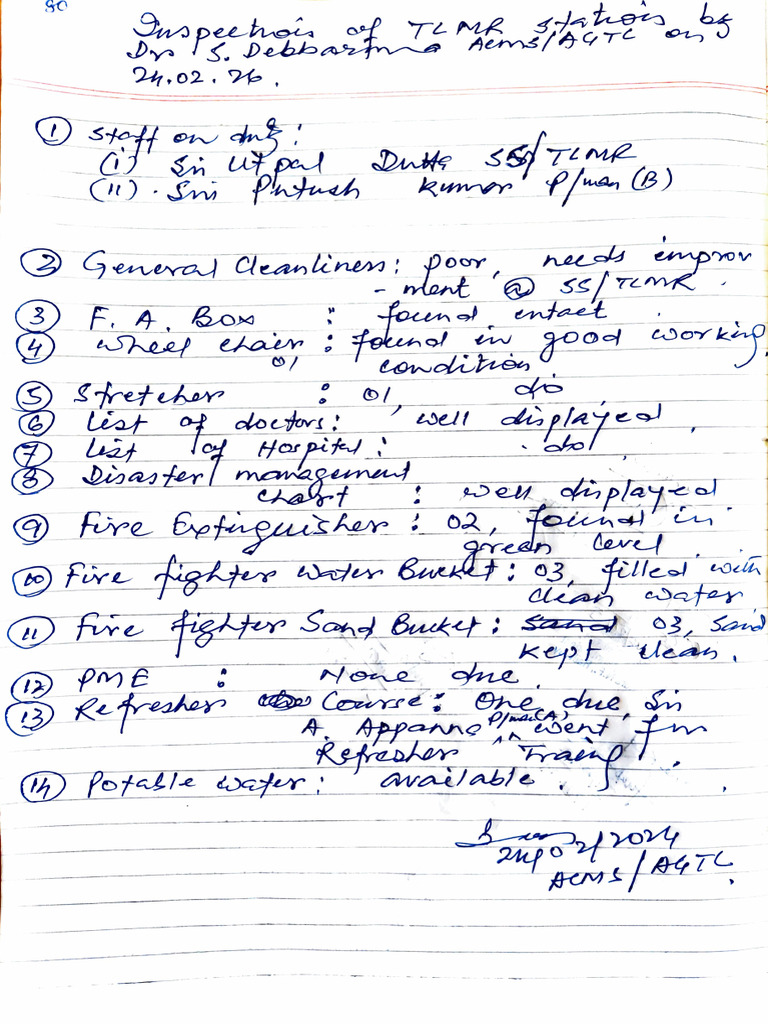 80
Inspection of TLMR station by
Dr S. Debbarma ACMS/AGTL on
24.02.26.
① Staff on duty:
(i) Sri Utpal Dutta SS/TLMR
(ii). Sri Pintush Kumar P/man (B)
② General Cleanliness: poor, needs improv
- ment @ SS/TLMR.
③ F. A. Box : found entact.
④ wheel chair : found in good working
01, condition
⑤ Stretcher : 01, do
⑥ List of doctors: well displayed.
⑦ List of Hospital: do.
⑧ Disaster management
chart : well displayed
⑨ Fire Extinguisher : 02, found in
green level.
⑩ Fire fighter water Bucket: 03, filled with
clean water
⑪ Fire fighter Sand Bucket: sand 03, sand
kept clean.
⑫ PME : None due.
⑬ Refresher Course: One due, Sri
A. Appanna P/man(A) went for
Refresher Traing.
⑭ Potable water: available.
24/02/2024
ACMS/AGTL.